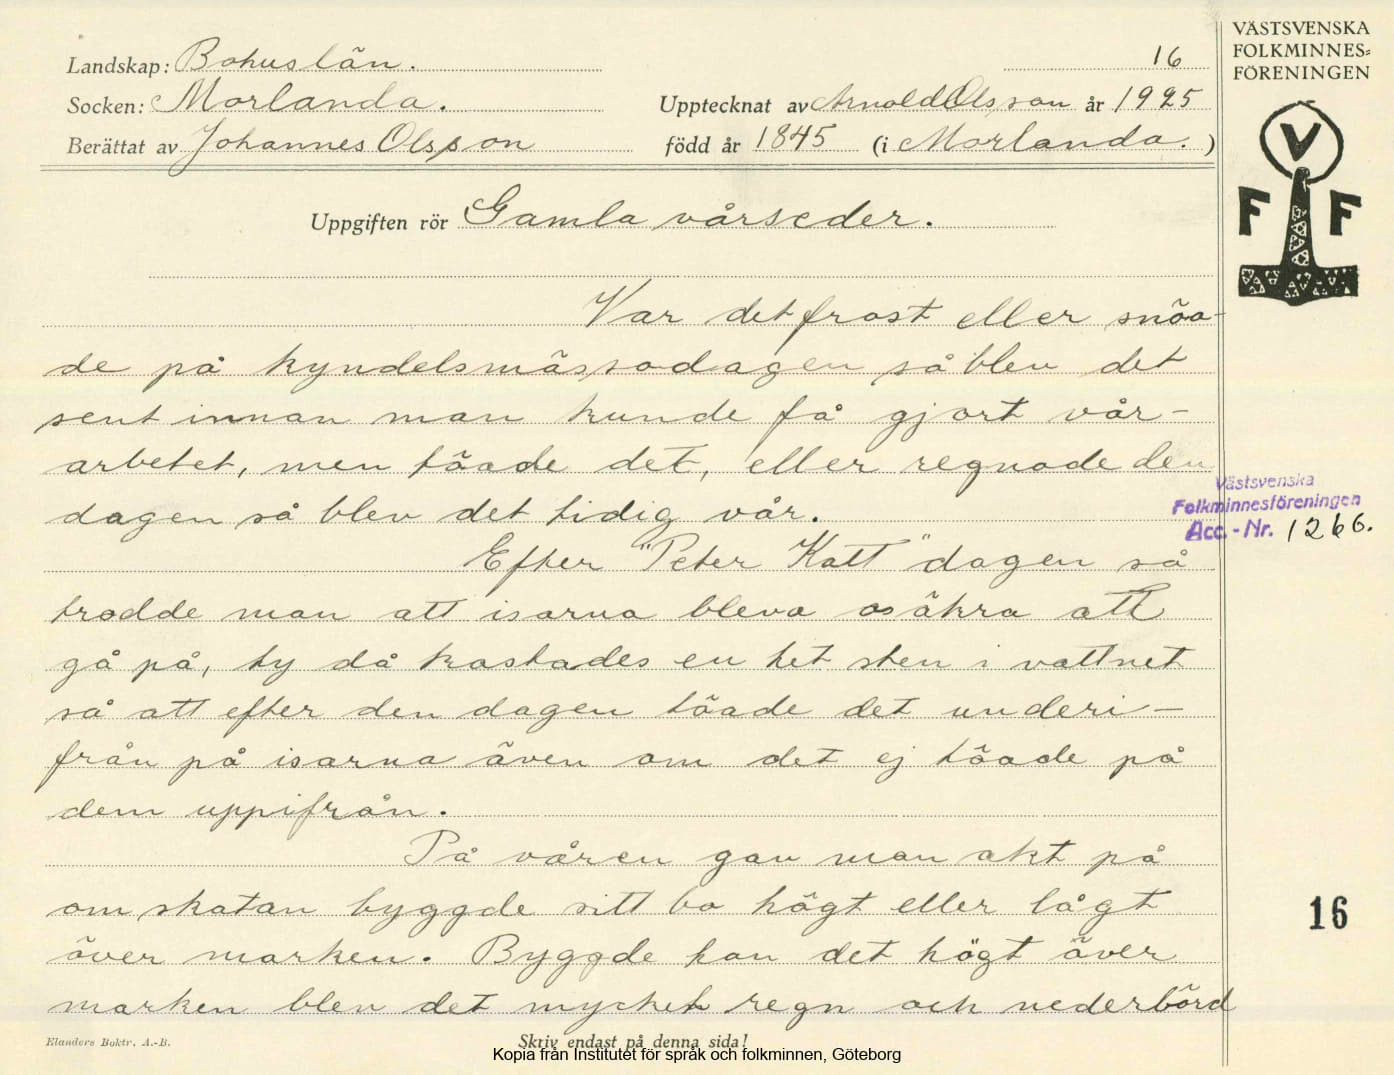 Landskap: Bohuslän.
16
Socken: Morlanda.
Upptecknat av Arnold Olsson år 1925
Berättat av Johannes Olsson
född år 1845 (i Morlanda.)
Uppgiften rör Gamla vårseder.
Var det frost eller snöa-
de på kyndelsmässodagen så blev det
sent innan man kunde få gjort vår-
arbetet, men töade det, eller regnade den
dagen så blev det tidig vår.
Efter "Peter Katt" dagen så
trodde man att isarna bleva osäkra att
gå på, ty då kastades en het sten i vattnet
så att efter den dagen töade det underi-
från på isarna även om det ej töade på
dem uppifrån.
På våren gav man akt på
om skatan byggde sitt bo högt eller lågt
över marken. Byggde hon det högt över
marken blev det mycket regn och nederbörd
Elanders Boktr. A.-B.
Skriv endast på denna sida!
Kopia från Institutet för språk och folkminnen, Göteborg
VÄSTSVENSKA
FOLKMINNES-
FÖRENINGEN
V
F F
Västsvenska
Folkminnesföreningen
Acc.-Nr. 1266.
16